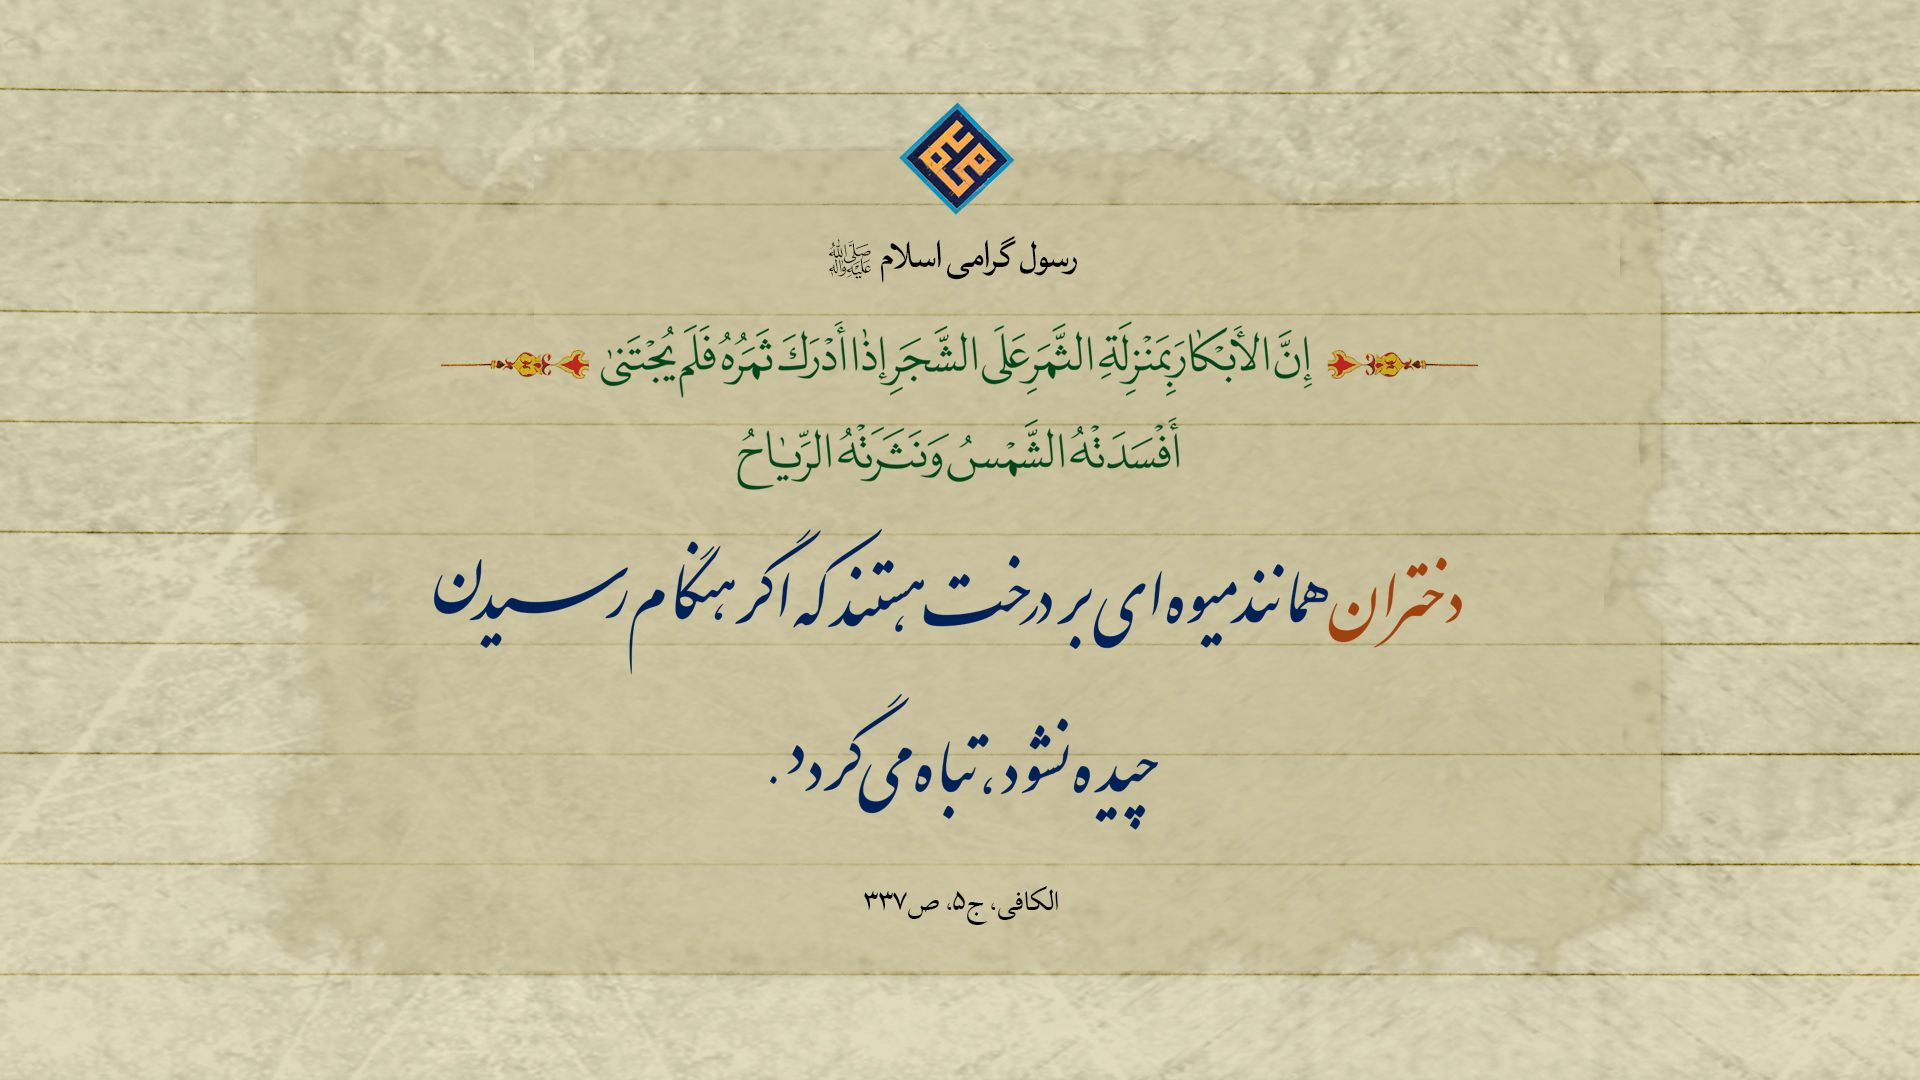 رسول گرامی اسلام ﷺ
إِنَّ الأَبْکٰارَ بِمَنْزِلَةِ الثَّمَرِ عَلَی الشَّجَرِ إِذٰا أَدْرَكَ ثَمَرُهُ فَلَم یُجْتَنیٰ
أَفْسَدَتْهُ الشَّمْسُ وَ نَثَرَتْهُ الرِّیٰاحُ
دختران همانند میوه ای بر درخت هستند که اگر هنگام رسیدن
چیده نشود، تباه می گردد.
الکافی، ج۵، ص۳۳۷